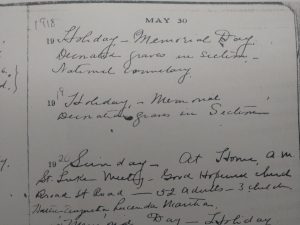 MAY 30
1918
19 Holiday - Memorial Day
Decorated graves in Section -
National Cemetery.
1919 Holiday. - Memorial
Decorated graves in Section
1920 Sunday - At Home, a.m.
St. Luke Meeting - Good Hope church
Broad St Road - 52 adults - 3 children
Lucinda Martha.
Day - Holiday